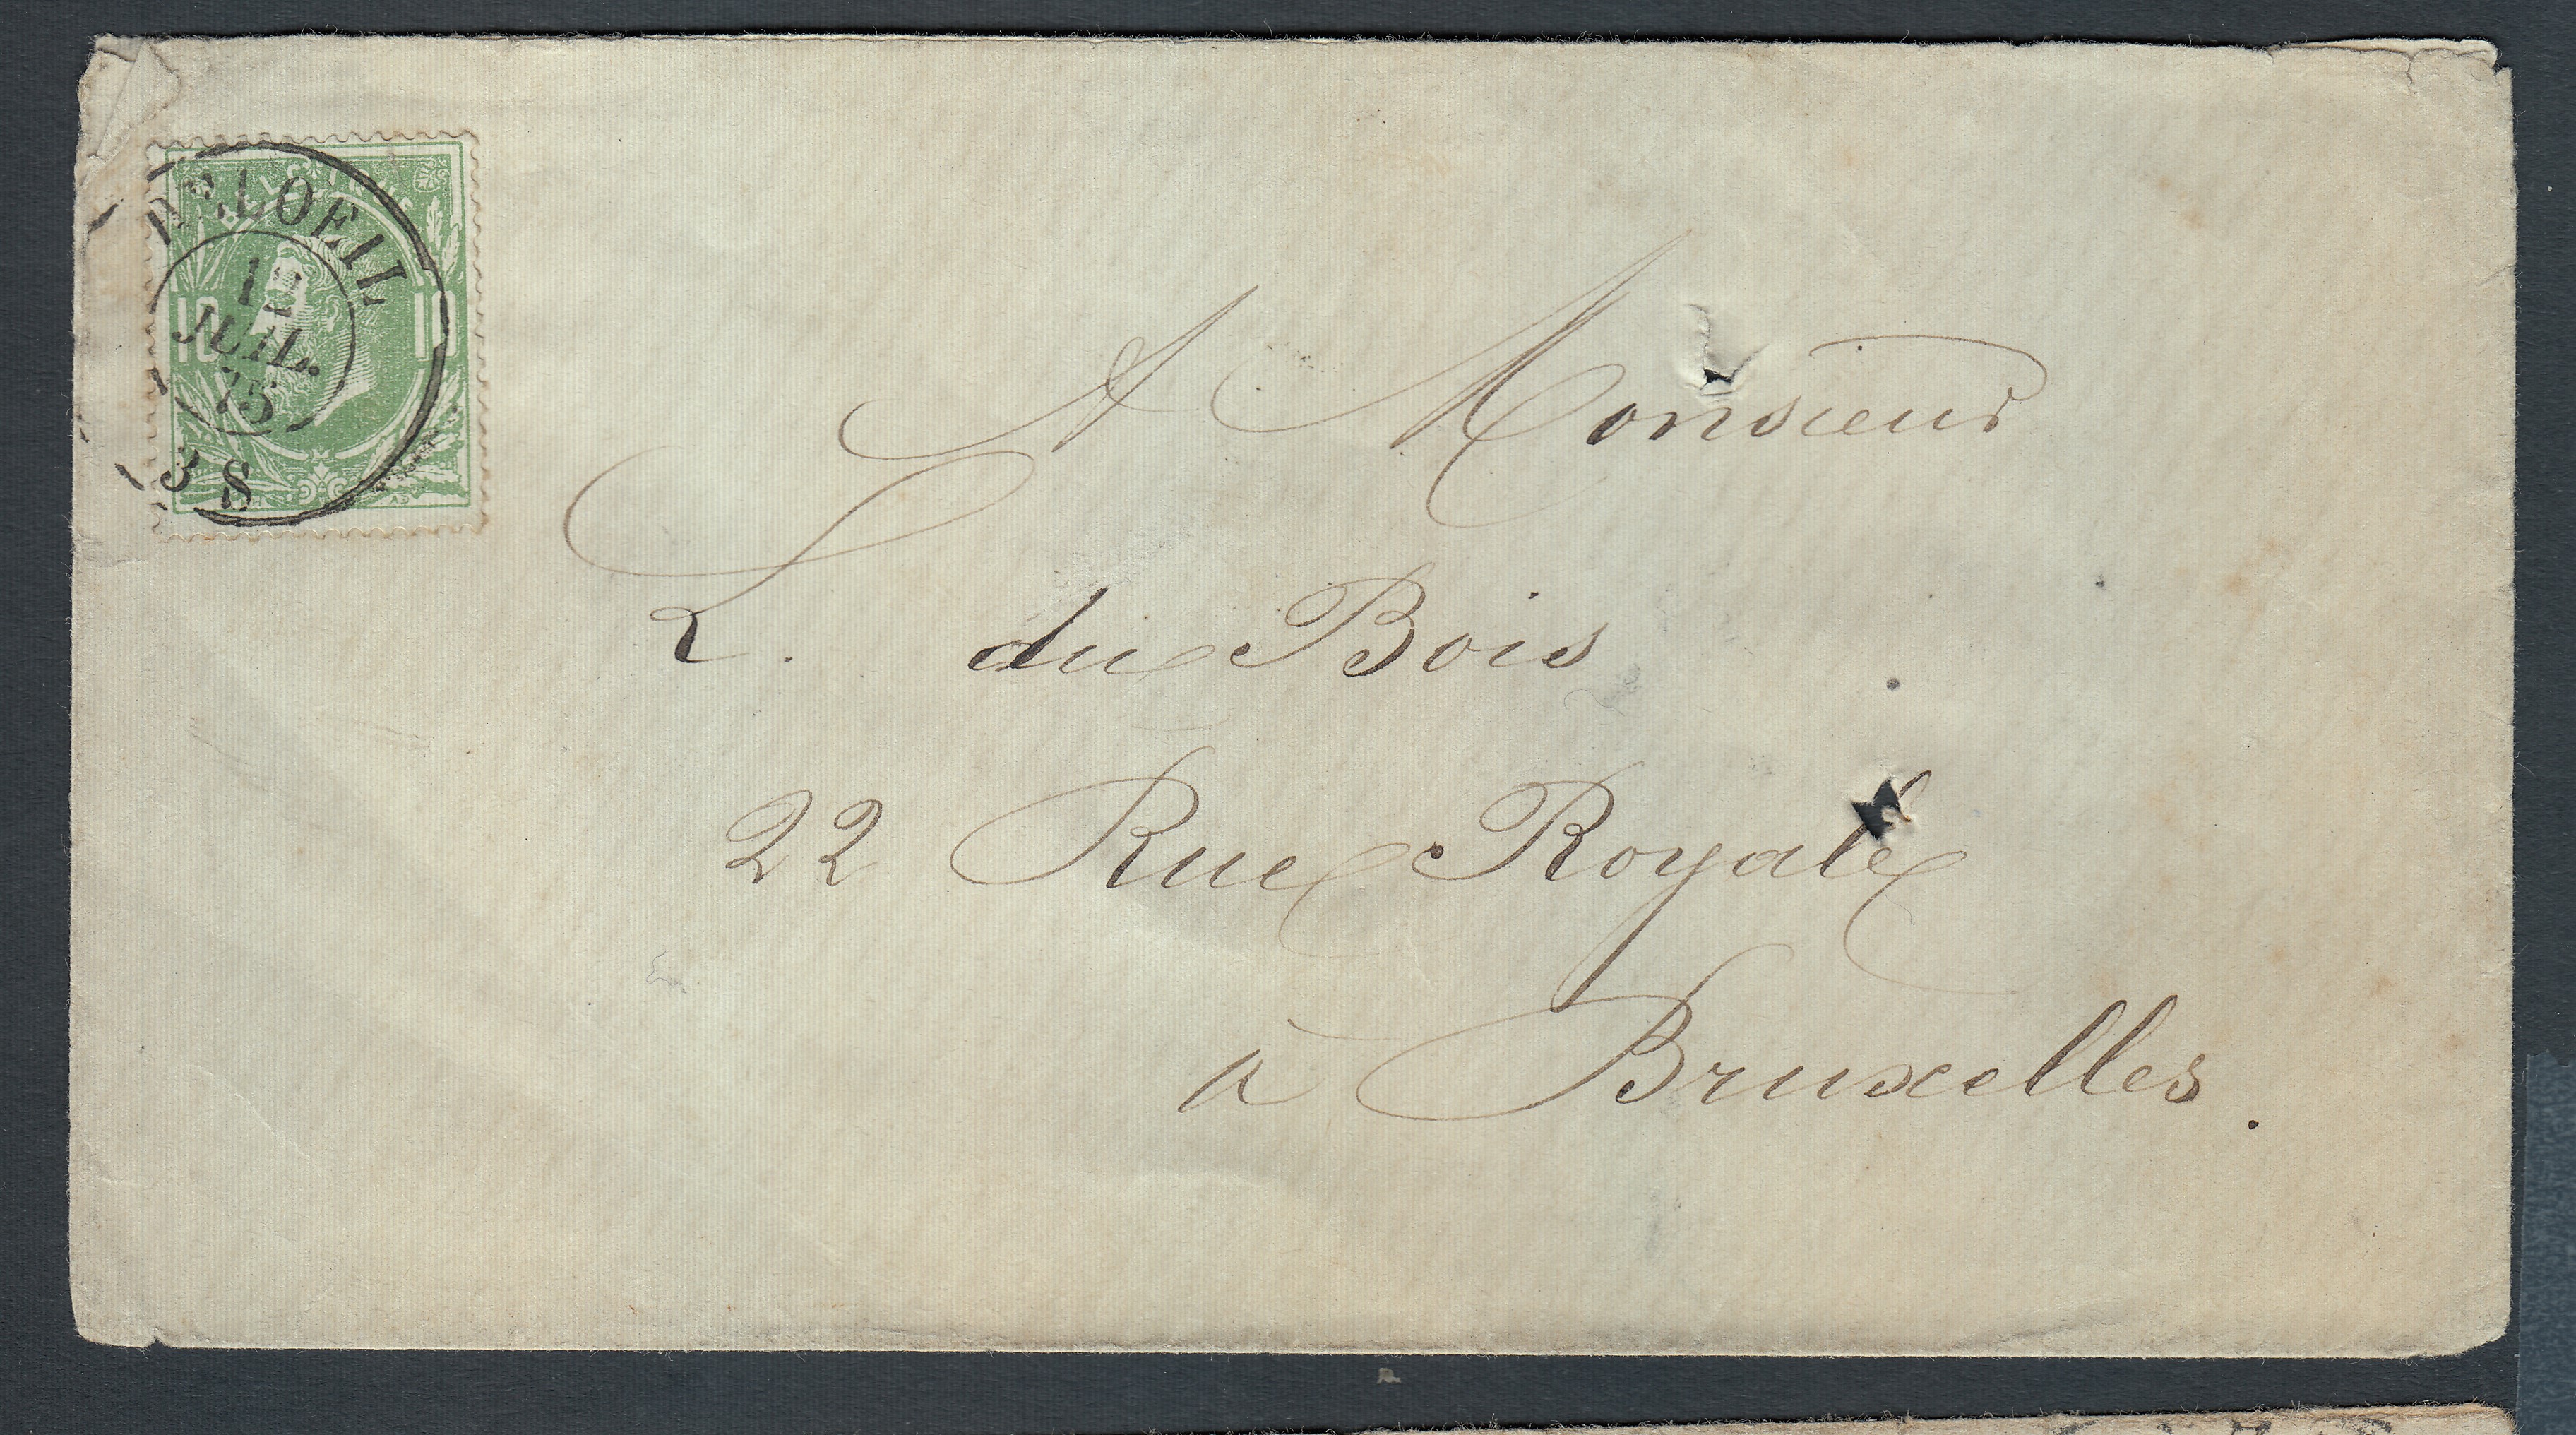 BELGIQUE
10 10
BELOEIL
12
JUIL.
75
3 S
A Monsieur
L. du Bois
22 Rue Royale
à Bruxelles.